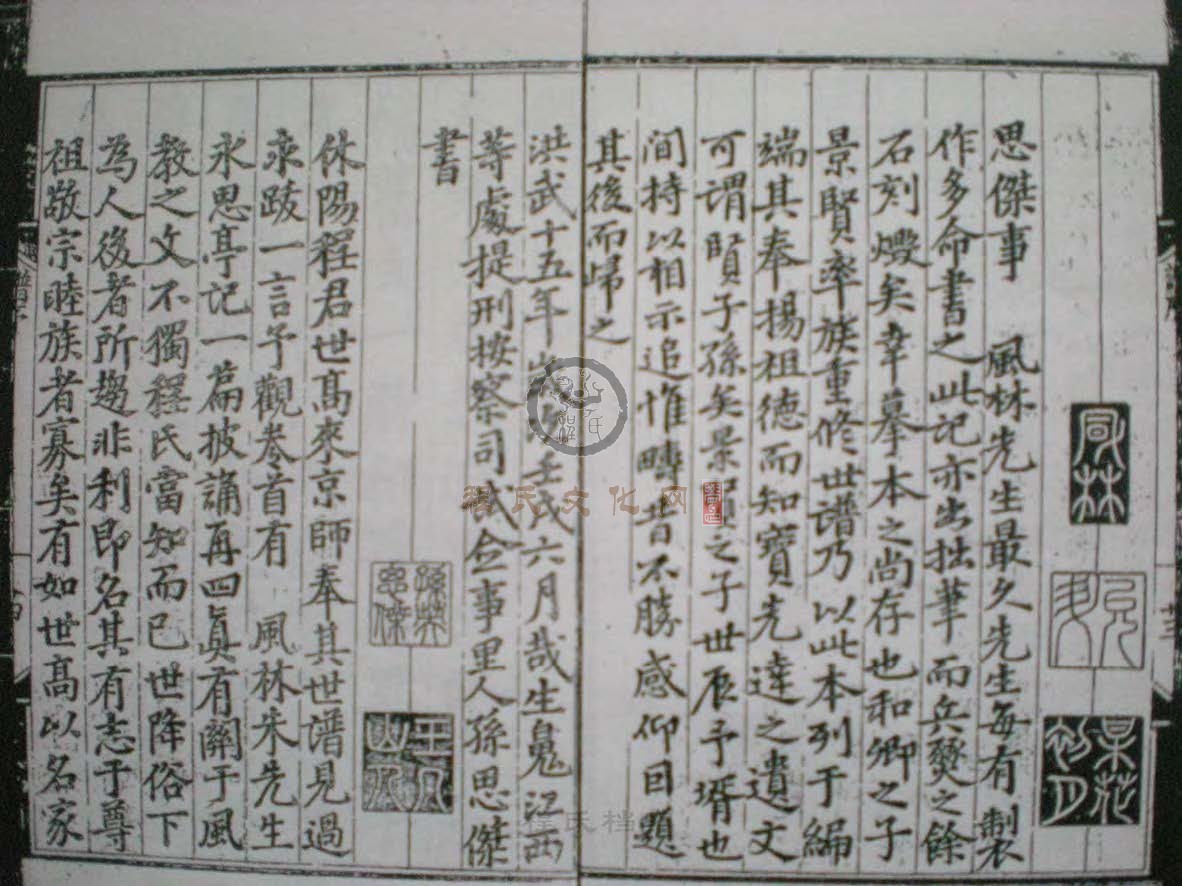 思傑事　風林先生最久先生每有製
作多命書之此記亦出拙筆而兵燹之餘
石刻燬矣幸摹本之尚存也和卿之子
景賢率族重修世譜乃以此本列于編
端其奉揚祖德而知寶先達之遺文
可謂賢子孫矣景賢之子世辰予壻也
間持以相示追惟疇昔不勝感仰因題
其後而歸之
洪武十五年歲次壬戌六月哉生鬼江西
等處提刑按察司試僉事里人孫思傑
書
孫榮
思傑
休陽程君世高來京師奉其世譜見過
求跋一言予觀卷首有　風林朱先生
永思亭記一篇披誦再四真有關于風
教之文不獨程氏當知而已世降俗下
為人後者所趨非利即名其有志于尊
祖敬宗睦族者寡矣有如世高以名家
程氏文化网
程氏档